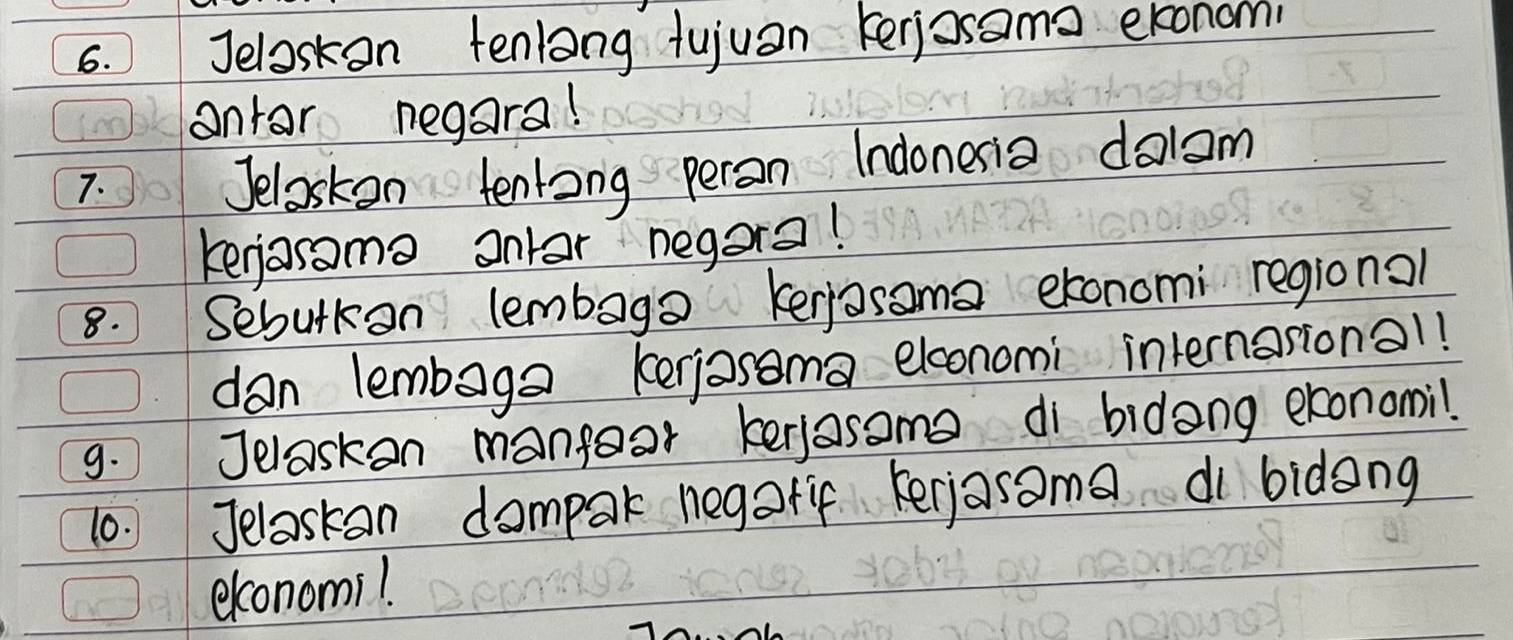 6. Jelaskan tentang tujuan kerjasama ekonomi
antar negara!
7. Jelaskan tentang peran Indonesia dalam
kerjasama antar negara!
8. Sebutkan lembaga kerjasama ekonomi regional
dan lembaga kerjasama ekonomi internasional!
9. Jelaskan manfaat kerjasama di bidang ekonomi!
10. Jelaskan dampak negatif kerjasama di bidang
ekonomi!